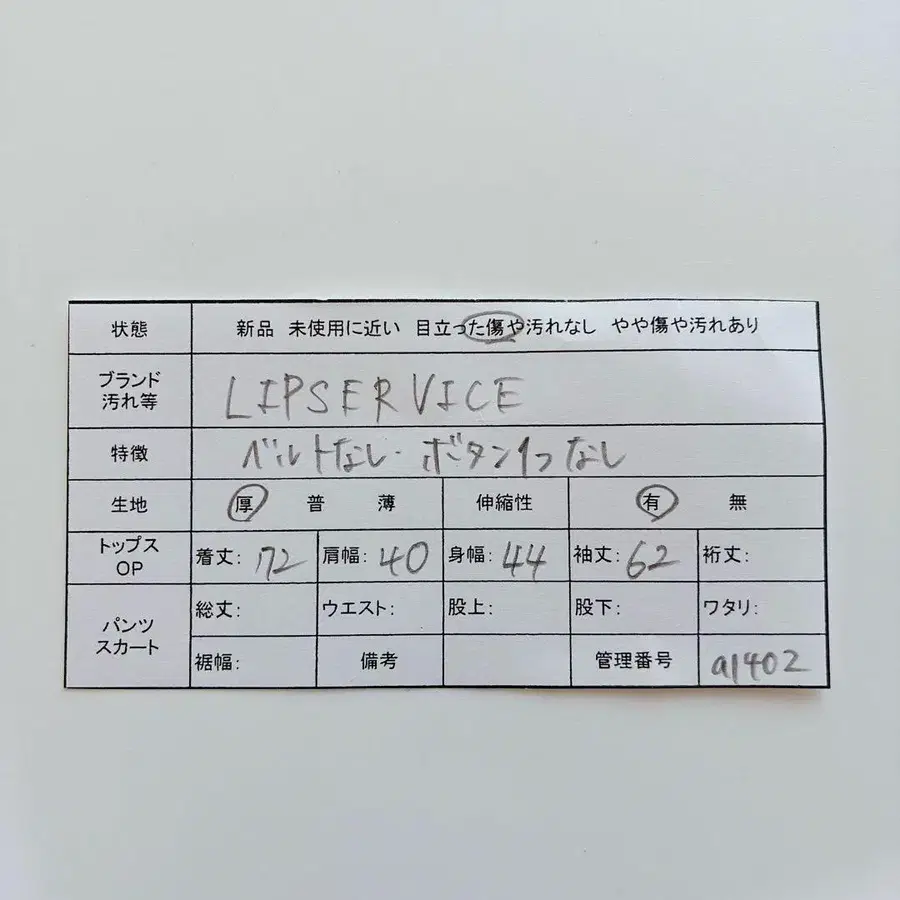 状態 新品 未使用に近い 目立った傷や汚れなし やや傷や汚れあり
ブランド
汚れ等
LIPSERVICE
特徴 ベルトなし・ボタン1つなし
生地 厚 普 薄 伸縮性 有 無
トップス
OP
着丈: 72 肩幅: 40 身幅: 44 袖丈: 62 裄丈:
パンツ
スカート
総丈: ウエスト: 股上: 股下: ワタリ:
裾幅: 備考 管理番号 a1402